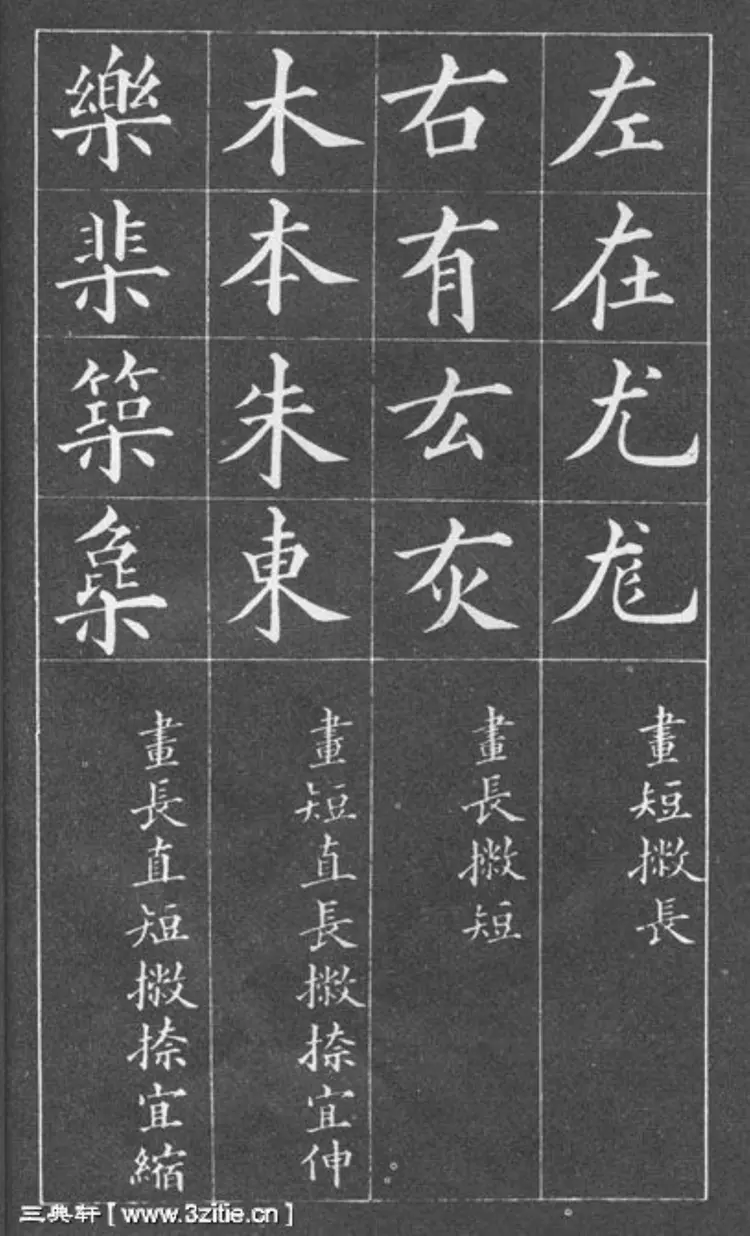 左在尤尨
畫短撇長
右有厷灰
畫長撇短
木本朱東
畫短直長撇捺宜伸
樂棐築
畫長直短撇捺宜縮
三典轩[www.3zitie.cn]